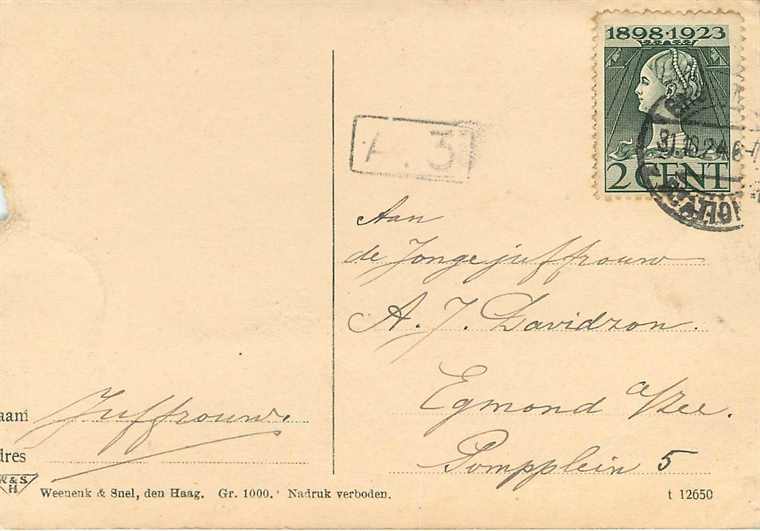 1898·1923
2 CENT
31.10.24.6-
A. 3
Aan
de Jongejuffrouw
A. J. Davidzon.
Egmond a/zee.
Pompplein 5
aam Juffrouw.
dres
W&S
H
Weenenk & Snel, den Haag. Gr. 1000. Nadruk verboden.
t 12650